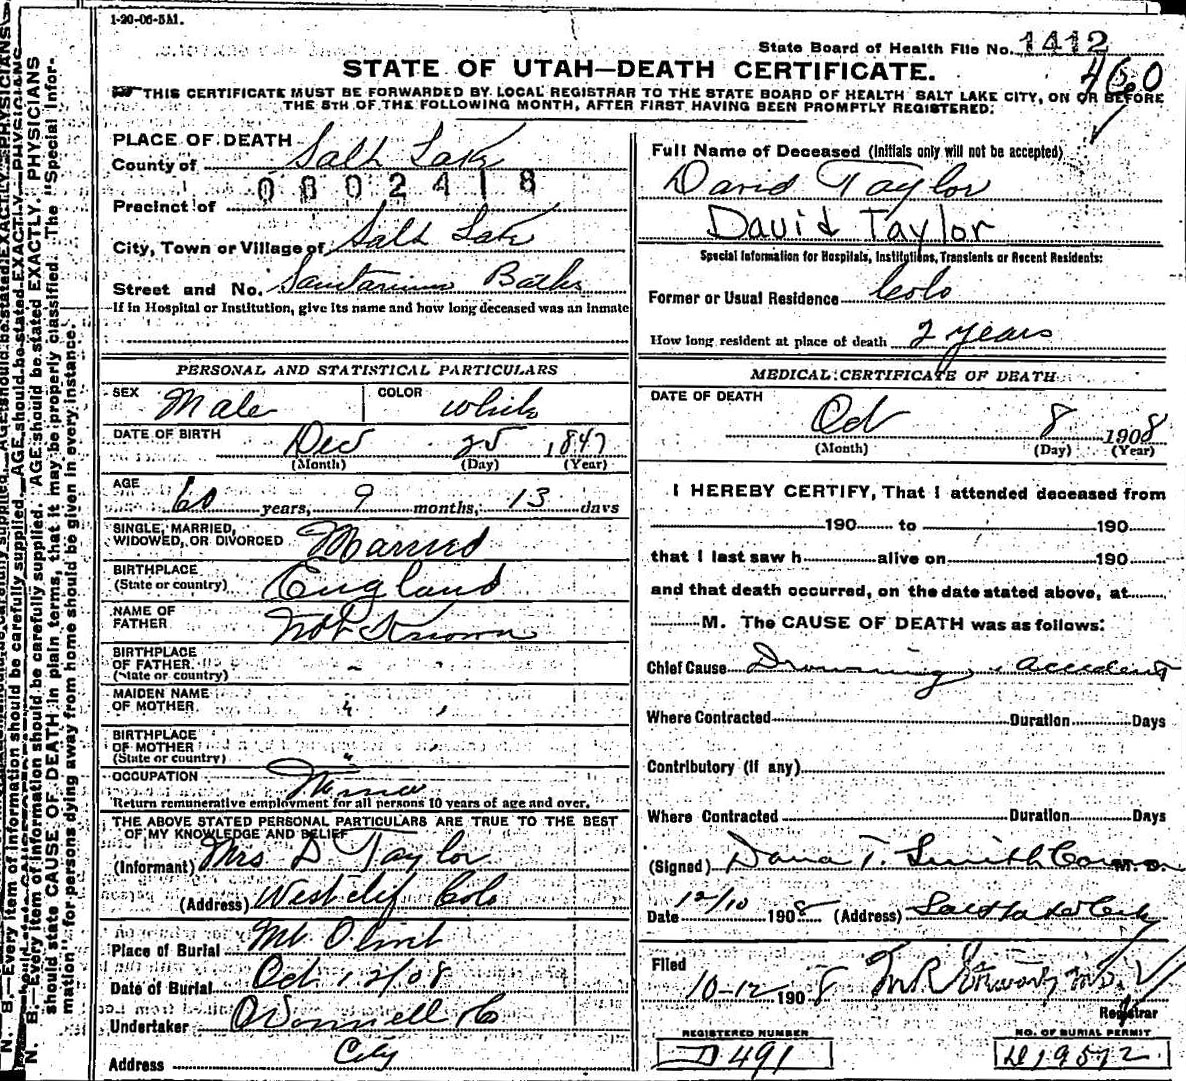 1-20-06-5M.
State Board of Health File No. 1412
460
STATE OF UTAH—DEATH CERTIFICATE.
THIS CERTIFICATE MUST BE FORWARDED BY LOCAL REGISTRAR TO THE STATE BOARD OF HEALTH SALT LAKE CITY, ON OR BEFORE
THE 5TH OF THE FOLLOWING MONTH, AFTER FIRST HAVING BEEN PROMPTLY REGISTERED.
PLACE OF DEATH
County of Salt Lake
0802418
Precinct of
City, Town or Village of Salt Lake
Street and No. Sanitarium Baths
If in Hospital or Institution, give its name and how long deceased was an inmate
Full Name of Deceased (Initials only will not be accepted)
David Taylor
David Taylor
Special Information for Hospitals, Institutions, Transients or Recent Residents:
Former or Usual Residence Colo
How long resident at place of death 2 years
PERSONAL AND STATISTICAL PARTICULARS
SEX Male COLOR white
DATE OF BIRTH Dec 25 1847
(Month) (Day) (Year)
AGE 60 years, 9 months, 13 days
SINGLE, MARRIED,
WIDOWED, OR DIVORCED Married
BIRTHPLACE
(State or country) England
NAME OF
FATHER Not Known
BIRTHPLACE
OF FATHER
(State or country)
MAIDEN NAME
OF MOTHER
BIRTHPLACE
OF MOTHER
(State or country)
OCCUPATION
Return remunerative employment for all persons 10 years of age and over.
THE ABOVE STATED PERSONAL PARTICULARS ARE TRUE TO THE BEST
OF MY KNOWLEDGE AND BELIEF
(Informant) Mrs D Taylor
(Address) Westclif Colo
Place of Burial Mt Olivet
Date of Burial Oct 12/08
Undertaker O'Donnell & Co
Address City
MEDICAL CERTIFICATE OF DEATH
DATE OF DEATH
Oct 8 1908
(Month) (Day) (Year)
I HEREBY CERTIFY, That I attended deceased from
190 to 190
that I last saw h alive on 190
and that death occurred, on the date stated above, at
M. The CAUSE OF DEATH was as follows:
Chief Cause Drowning accident
Where Contracted Duration Days
Contributory (If any)
Where Contracted Duration Days
(Signed) Dana T. Smith Coroner M. D.
Date 12/10 1908 (Address) Salt Lake City
Filed
10-12 1908
Registrar
REGISTERED NUMBER
D 491
NO. OF BURIAL PERMIT
D 19572
N. B.—Every item of information should be carefully supplied. AGE should be stated EXACTLY. PHYSICIANS
should state CAUSE OF DEATH in plain terms, that it may be properly classified. The "Special Infor-
mation" for persons dying away from home should be given in every instance.